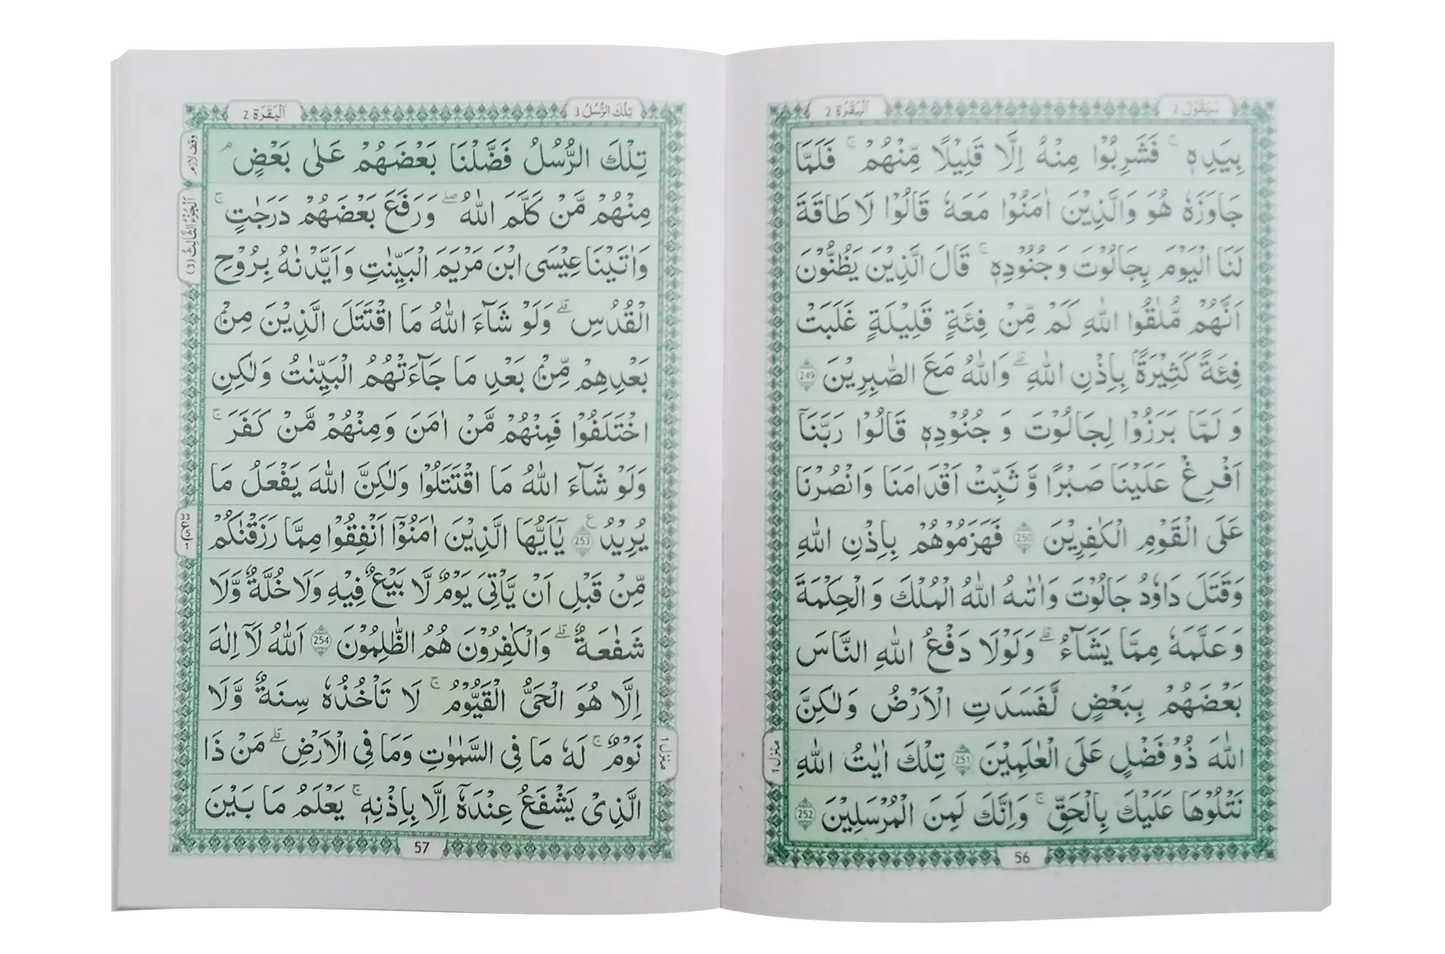 سَيَقُوْلُ 2
اَلْبَقَرَة 2
بِيَدِهٖ ۚ فَشَرِبُوْا مِنْهُ اِلَّا قَلِيْلًا مِّنْهُمْ ۚ فَلَمَّا
جَاوَزَهٗ هُوَ وَالَّذِيْنَ اٰمَنُوْا مَعَهٗ قَالُوْا لَا طَاقَةَ
لَنَا الْيَوْمَ بِجَالُوْتَ وَجُنُوْدِهٖ ۚ قَالَ الَّذِيْنَ يَظُنُّوْنَ
اَنَّهُمْ مُّلٰقُوا اللّٰهِ كَمْ مِّنْ فِئَةٍ قَلِيْلَةٍ غَلَبَتْ
فِئَةً كَثِيْرَةًۢ بِاِذْنِ اللّٰهِ ۗ وَاللّٰهُ مَعَ الصّٰبِرِيْنَ 249
وَ لَمَّا بَرَزُوْا لِجَالُوْتَ وَ جُنُوْدِهٖ قَالُوْا رَبَّنَآ
اَفْرِغْ عَلَيْنَا صَبْرًا وَّ ثَبِّتْ اَقْدَامَنَا وَانْصُرْنَا
عَلَى الْقَوْمِ الْكٰفِرِيْنَ 250 فَهَزَمُوْهُمْ بِاِذْنِ اللّٰهِ
وَقَتَلَ دَاوٗدُ جَالُوْتَ وَاٰتٰىهُ اللّٰهُ الْمُلْكَ وَ الْحِكْمَةَ
وَ عَلَّمَهٗ مِمَّا يَشَآءُ ۗ وَلَوْلَا دَفْعُ اللّٰهِ النَّاسَ
بَعْضَهُمْ بِبَعْضٍ لَّفَسَدَتِ الْاَرْضُ وَلٰكِنَّ
اللّٰهَ ذُوْ فَضْلٍ عَلَى الْعٰلَمِيْنَ 251 تِلْكَ اٰيٰتُ اللّٰهِ
نَتْلُوْهَا عَلَيْكَ بِالْحَقِّ ۚ وَاِنَّكَ لَمِنَ الْمُرْسَلِيْنَ 252
منزل 1
56
تِلْكَ الرُّسُلُ 3
اَلْبَقَرَة 2
تِلْكَ الرُّسُلُ فَضَّلْنَا بَعْضَهُمْ عَلٰى بَعْضٍ ۘ
مِنْهُمْ مَّنْ كَلَّمَ اللّٰهُ ۖ وَرَفَعَ بَعْضَهُمْ دَرَجٰتٍ ۚ
وَاٰتَيْنَا عِيْسَى ابْنَ مَرْيَمَ الْبَيِّنٰتِ وَاَيَّدْنٰهُ بِرُوْحِ
الْقُدُسِ ۗ وَلَوْ شَآءَ اللّٰهُ مَا اقْتَتَلَ الَّذِيْنَ مِنْۢ
بَعْدِهِمْ مِّنْۢ بَعْدِ مَا جَآءَتْهُمُ الْبَيِّنٰتُ وَلٰكِنِ
اخْتَلَفُوْا فَمِنْهُمْ مَّنْ اٰمَنَ وَمِنْهُمْ مَّنْ كَفَرَ ۚ
وَلَوْ شَآءَ اللّٰهُ مَا اقْتَتَلُوْا وَلٰكِنَّ اللّٰهَ يَفْعَلُ مَا
يُرِيْدُ 253 ع يٰٓاَيُّهَا الَّذِيْنَ اٰمَنُوْٓا اَنْفِقُوْا مِمَّا رَزَقْنٰكُمْ
مِّنْ قَبْلِ اَنْ يَّاْتِيَ يَوْمٌ لَّا بَيْعٌ فِيْهِ وَلَا خُلَّةٌ وَّلَا
شَفٰعَةٌ ۗ وَالْكٰفِرُوْنَ هُمُ الظّٰلِمُوْنَ 254 اَللّٰهُ لَآ اِلٰهَ
اِلَّا هُوَ الْحَيُّ الْقَيُّوْمُ ۚ لَا تَاْخُذُهٗ سِنَةٌ وَّلَا
نَوْمٌ ۚ لَهٗ مَا فِي السَّمٰوٰتِ وَمَا فِي الْاَرْضِ ۗ مَنْ ذَا
الَّذِيْ يَشْفَعُ عِنْدَهٗٓ اِلَّا بِاِذْنِهٖ ۚ يَعْلَمُ مَا بَيْنَ
وقف لازم
اَلْجُزْءُ الثَّالِثُ (3)
منزل 1
57